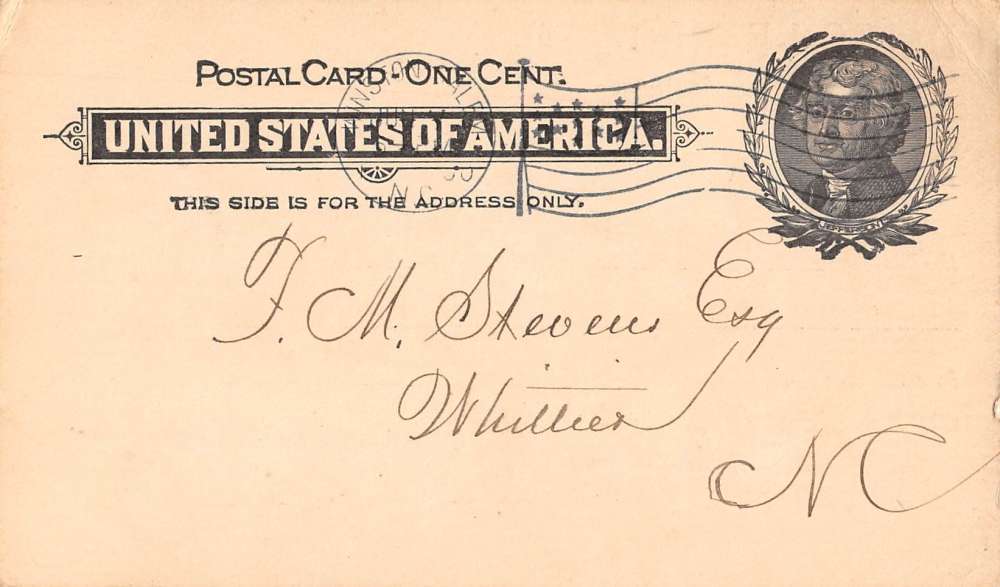 POSTAL CARD - ONE CENT.
UNITED STATES OF AMERICA.
THIS SIDE IS FOR THE ADDRESS ONLY.
N.C.
JEFFERSON
F. M. Stevens Esq
Whittier
N C